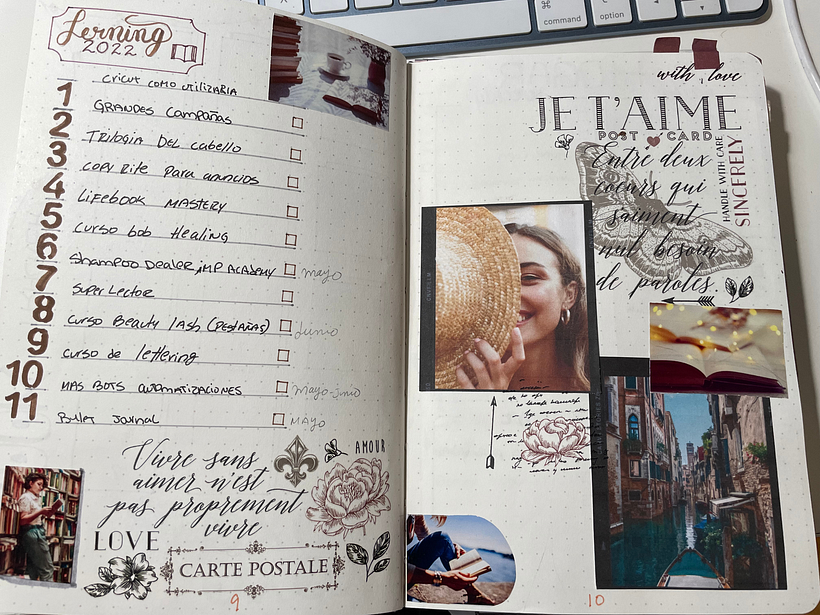 Lerning
2022
1 cricut como utilizarla
2 GRANDES campañas
3 TRILOGIA DEL cabello
4 copy Rite Para anuncios
5 Lifebook MASTERY
6 curso bob Healing
7 Shampoo Dealer, MP ACADEMY mayo
8 Super Lector
9 curso Beauty lash (PESTAÑAS) Junio
10 curso de lettering
11 MAS BOTS AUTOMATIZACIONES Mayo-junio
Bullet Journal MAYO
Vivre sans
aimer n'est
pas proprement
vivre
AMOUR
LOVE
CARTE POSTALE
9
with love
JE T'AIME
POST CARD
Entre deux
coeurs qui
s'aiment
nul besoin
de paroles
HANDLE WITH CARE
SINCERELY
10
command
option